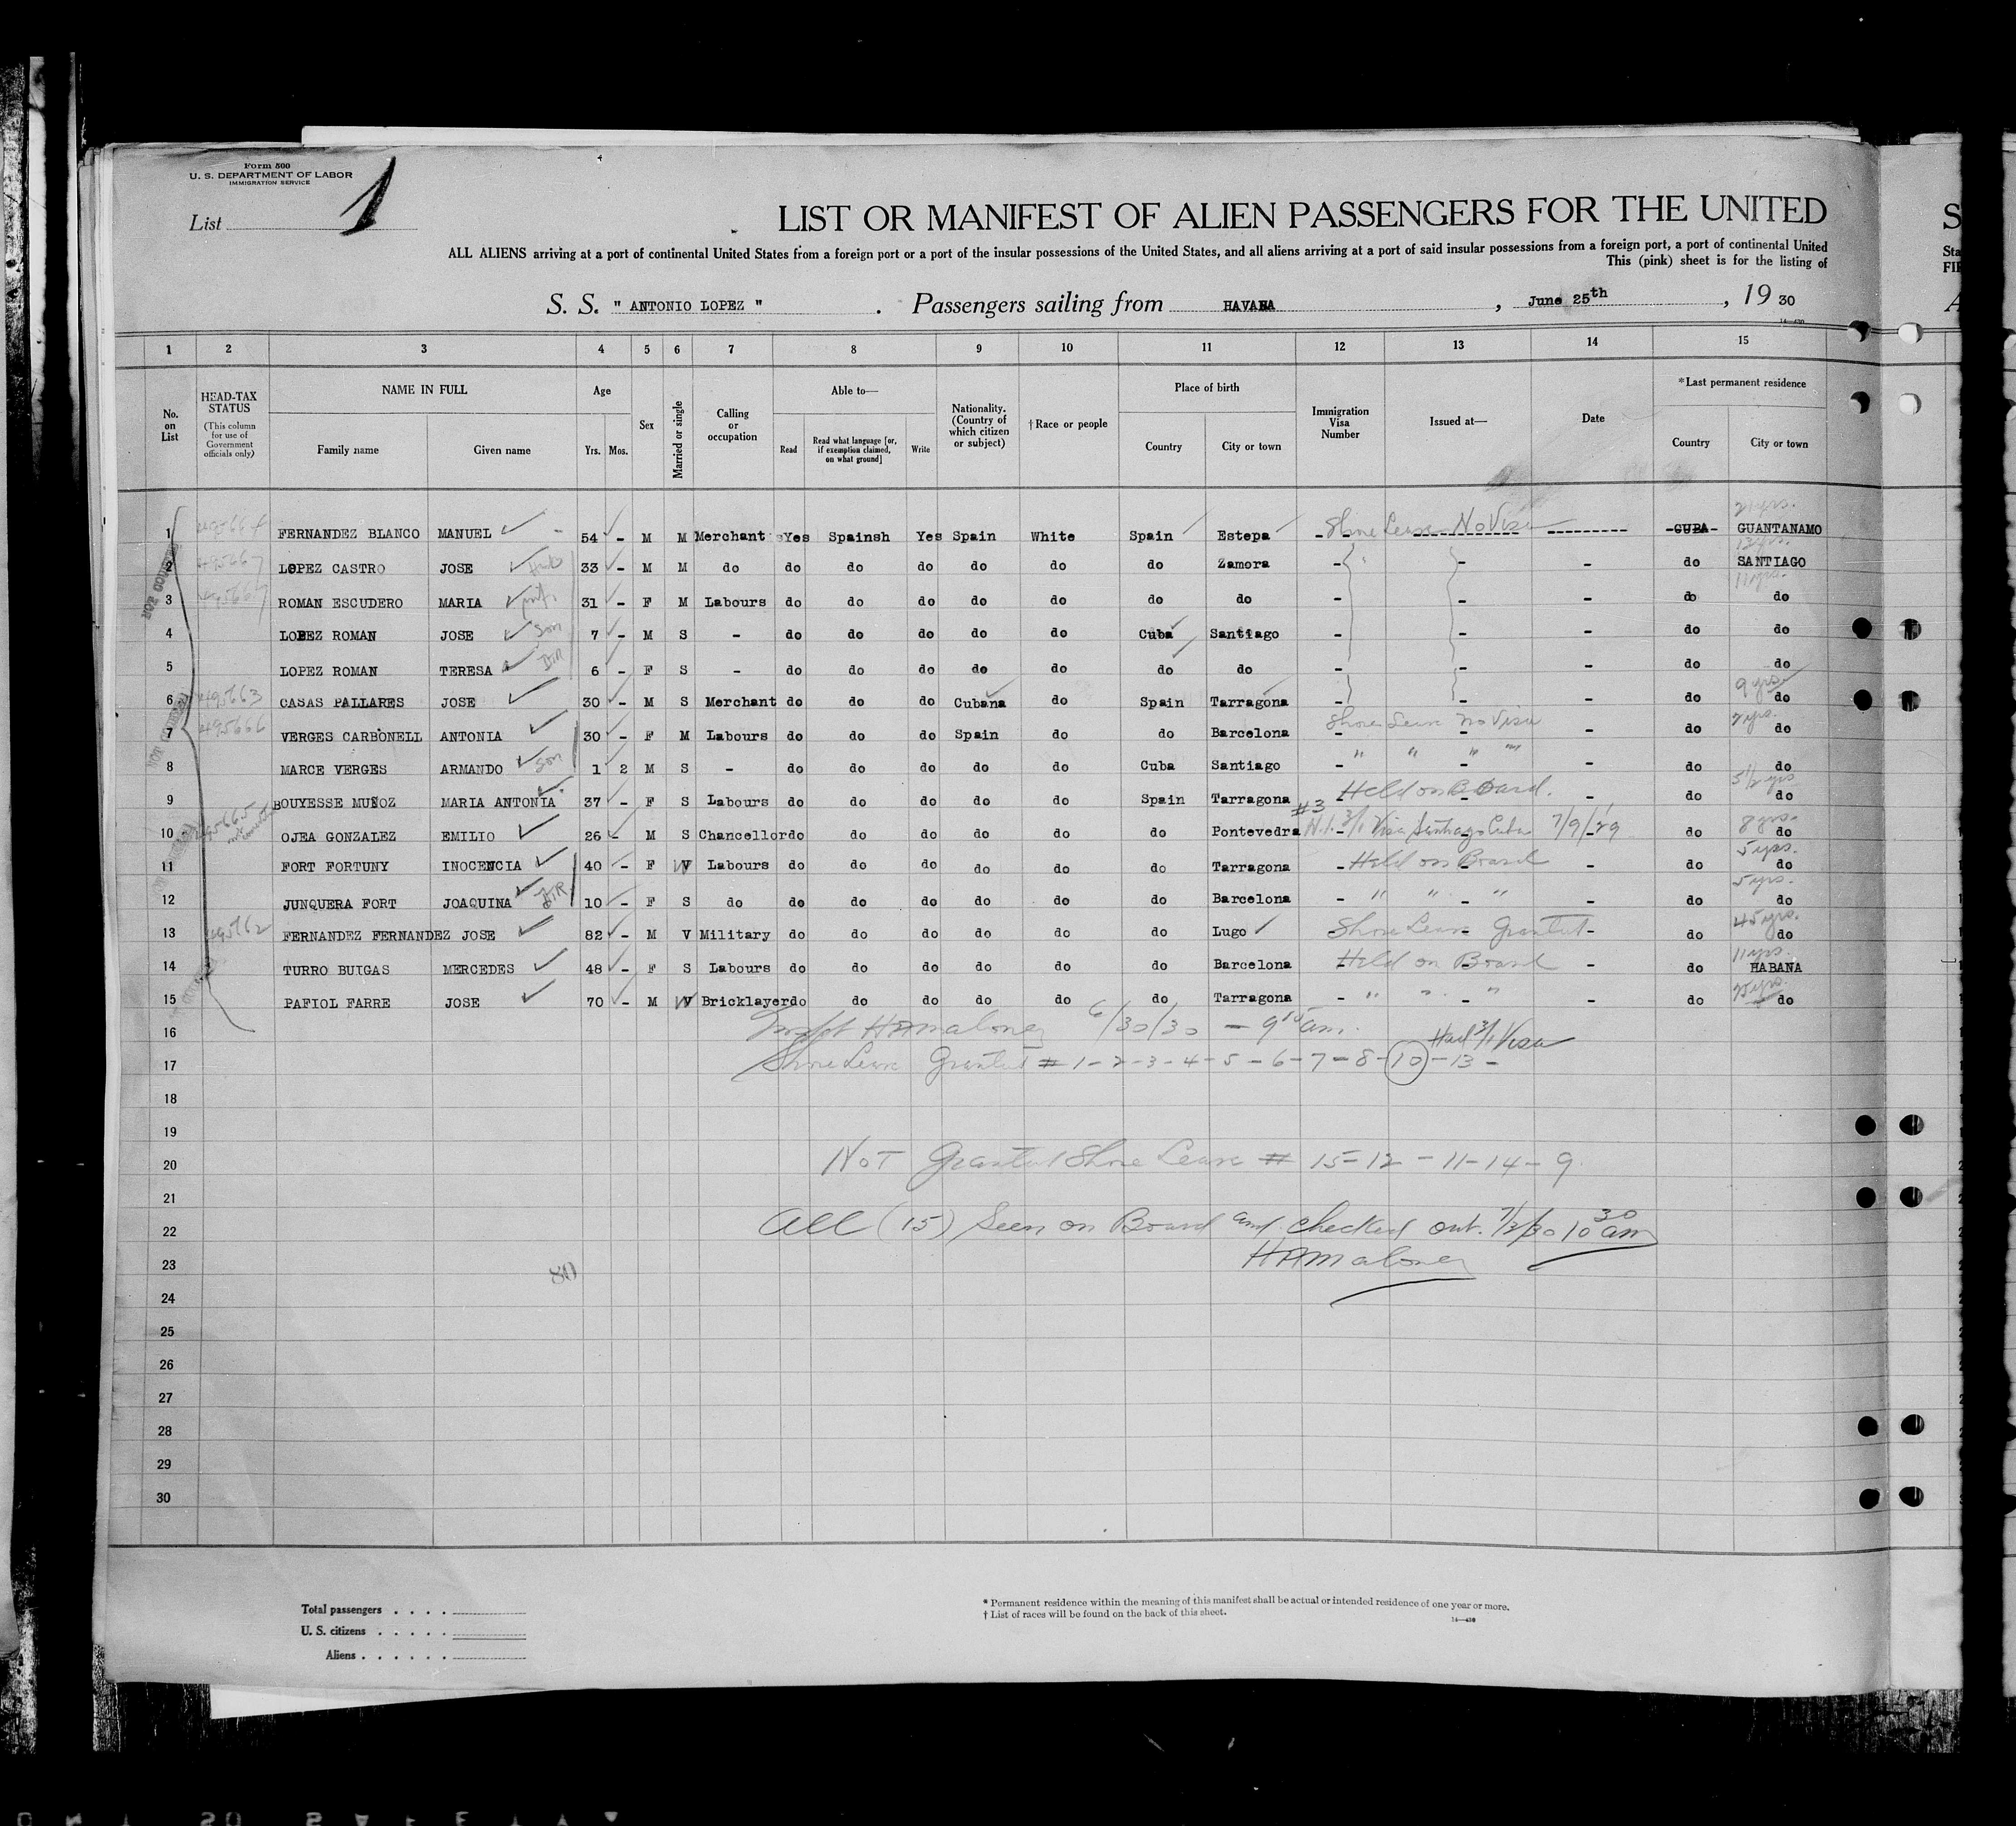 Form 500
U. S. DEPARTMENT OF LABOR
IMMIGRATION SERVICE
List 1
LIST OR MANIFEST OF ALIEN PASSENGERS FOR THE UNITED
ALL ALIENS arriving at a port of continental United States from a foreign port or a port of the insular possessions of the United States, and all aliens arriving at a port of said insular possessions from a foreign port, a port of continental United
This (pink) sheet is for the listing of
S. S. " ANTONIO LOPEZ " . Passengers sailing from HAVANA , June 25th , 19 30
1 2 3 4 5 6 7 8 9 10 11 12 13 14 15
No. on List
HEAD-TAX STATUS (This column for use of Government officials only)
NAME IN FULL Family name Given name
Age Yrs. Mos.
Sex
Married or single
Calling or occupation
Able to— Read Read what language [or, if exemption claimed, on what ground] Write
Nationality. (Country of which citizen or subject)
† Race or people
Place of birth Country City or town
Immigration Visa Number
Issued at—
Date
* Last permanent residence Country City or town
21 yrs.
1 FERNANDEZ BLANCO MANUEL 54 - M M Merchant Yes Spainsh Yes Spain White Spain Estepa Shore Leave No Visa -CUBA- GUANTANAMO
2 LOPEZ CASTRO JOSE 33 - M M do do do do do do do Zamora - - - do SANTIAGO
11 yrs.
3 ROMAN ESCUDERO MARIA 31 - F M Labours do do do do do do do - - - do do
4 LOPEZ ROMAN JOSE Son 7 - M S - do do do do do Cuba Santiago - - - do do
5 LOPEZ ROMAN TERESA 6 - F S - do do do do do do do - - - do do
9 yrs
6 495663 CASAS PALLARES JOSE 30 - M S Merchant do do do Cubana do Spain Tarragona - - - do do
7 495666 VERGES CARBONELL ANTONIA 30 - F M Labours do do do Spain do do Barcelona Shore Leave No Visa - do do
8 MARCE VERGES ARMANDO Son 1 2 M S - do do do do do Cuba Santiago - " " " " - do do
3 1/2 yrs
9 BOUYESSE MUÑOZ MARIA ANTONIA 37 - F S Labours do do do do do Spain Tarragona Held on Board. do do
8 yrs.
10 495665 OJEA GONZALEZ EMILIO 26 - M S Chancellor do do do do do do Pontevedra #3 Visa Santiago Cuba 7/9/29 do do
5 yrs.
11 FORT FORTUNY INOCENCIA 40 - F W Labours do do do do do do Tarragona - Held on Board - do do
5 yrs.
12 JUNQUERA FORT JOAQUINA 10 - F S do do do do do do do Barcelona - " " " - do do
45 yrs.
13 FERNANDEZ FERNANDEZ JOSE 82 - M V Military do do do do do do Lugo Shore Leave Granted - do do
11 yrs.
14 TURRO BUIGAS MERCEDES 48 - F S Labours do do do do do do Barcelona Held on Board - do HABANA
15 PAFIOL FARRE JOSE 70 - M W Bricklayer do do do do do do Tarragona - " " " - do do
16 Insp HAMaloney 6/30/30 - 9 15 am. Had 3/1 Visa
17 Shore Leave Granted # 1-2-3-4-5-6-7-8-10-13-
18
19
20 NOT Granted Shore Leave # 15-12-11-14-9
21
22 All (15) Seen on Board and checked out. 7/3/30 10 30 am
23 HAMaloney
80
24
25
26
27
28
29
30
Total passengers . . . .
U. S. citizens . . . . .
Aliens . . . . . .
* Permanent residence within the meaning of this manifest shall be actual or intended residence of one year or more.
† List of races will be found on the back of this sheet.
14—430